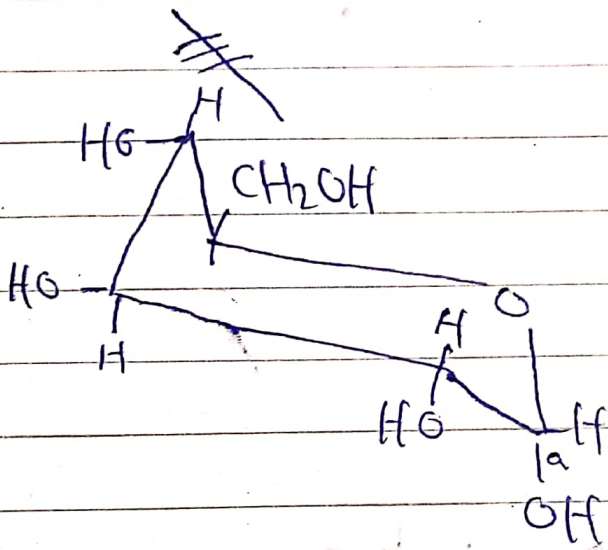 H
HO
CH₂OH
HO
O
H
H
HO
H
1a
OH